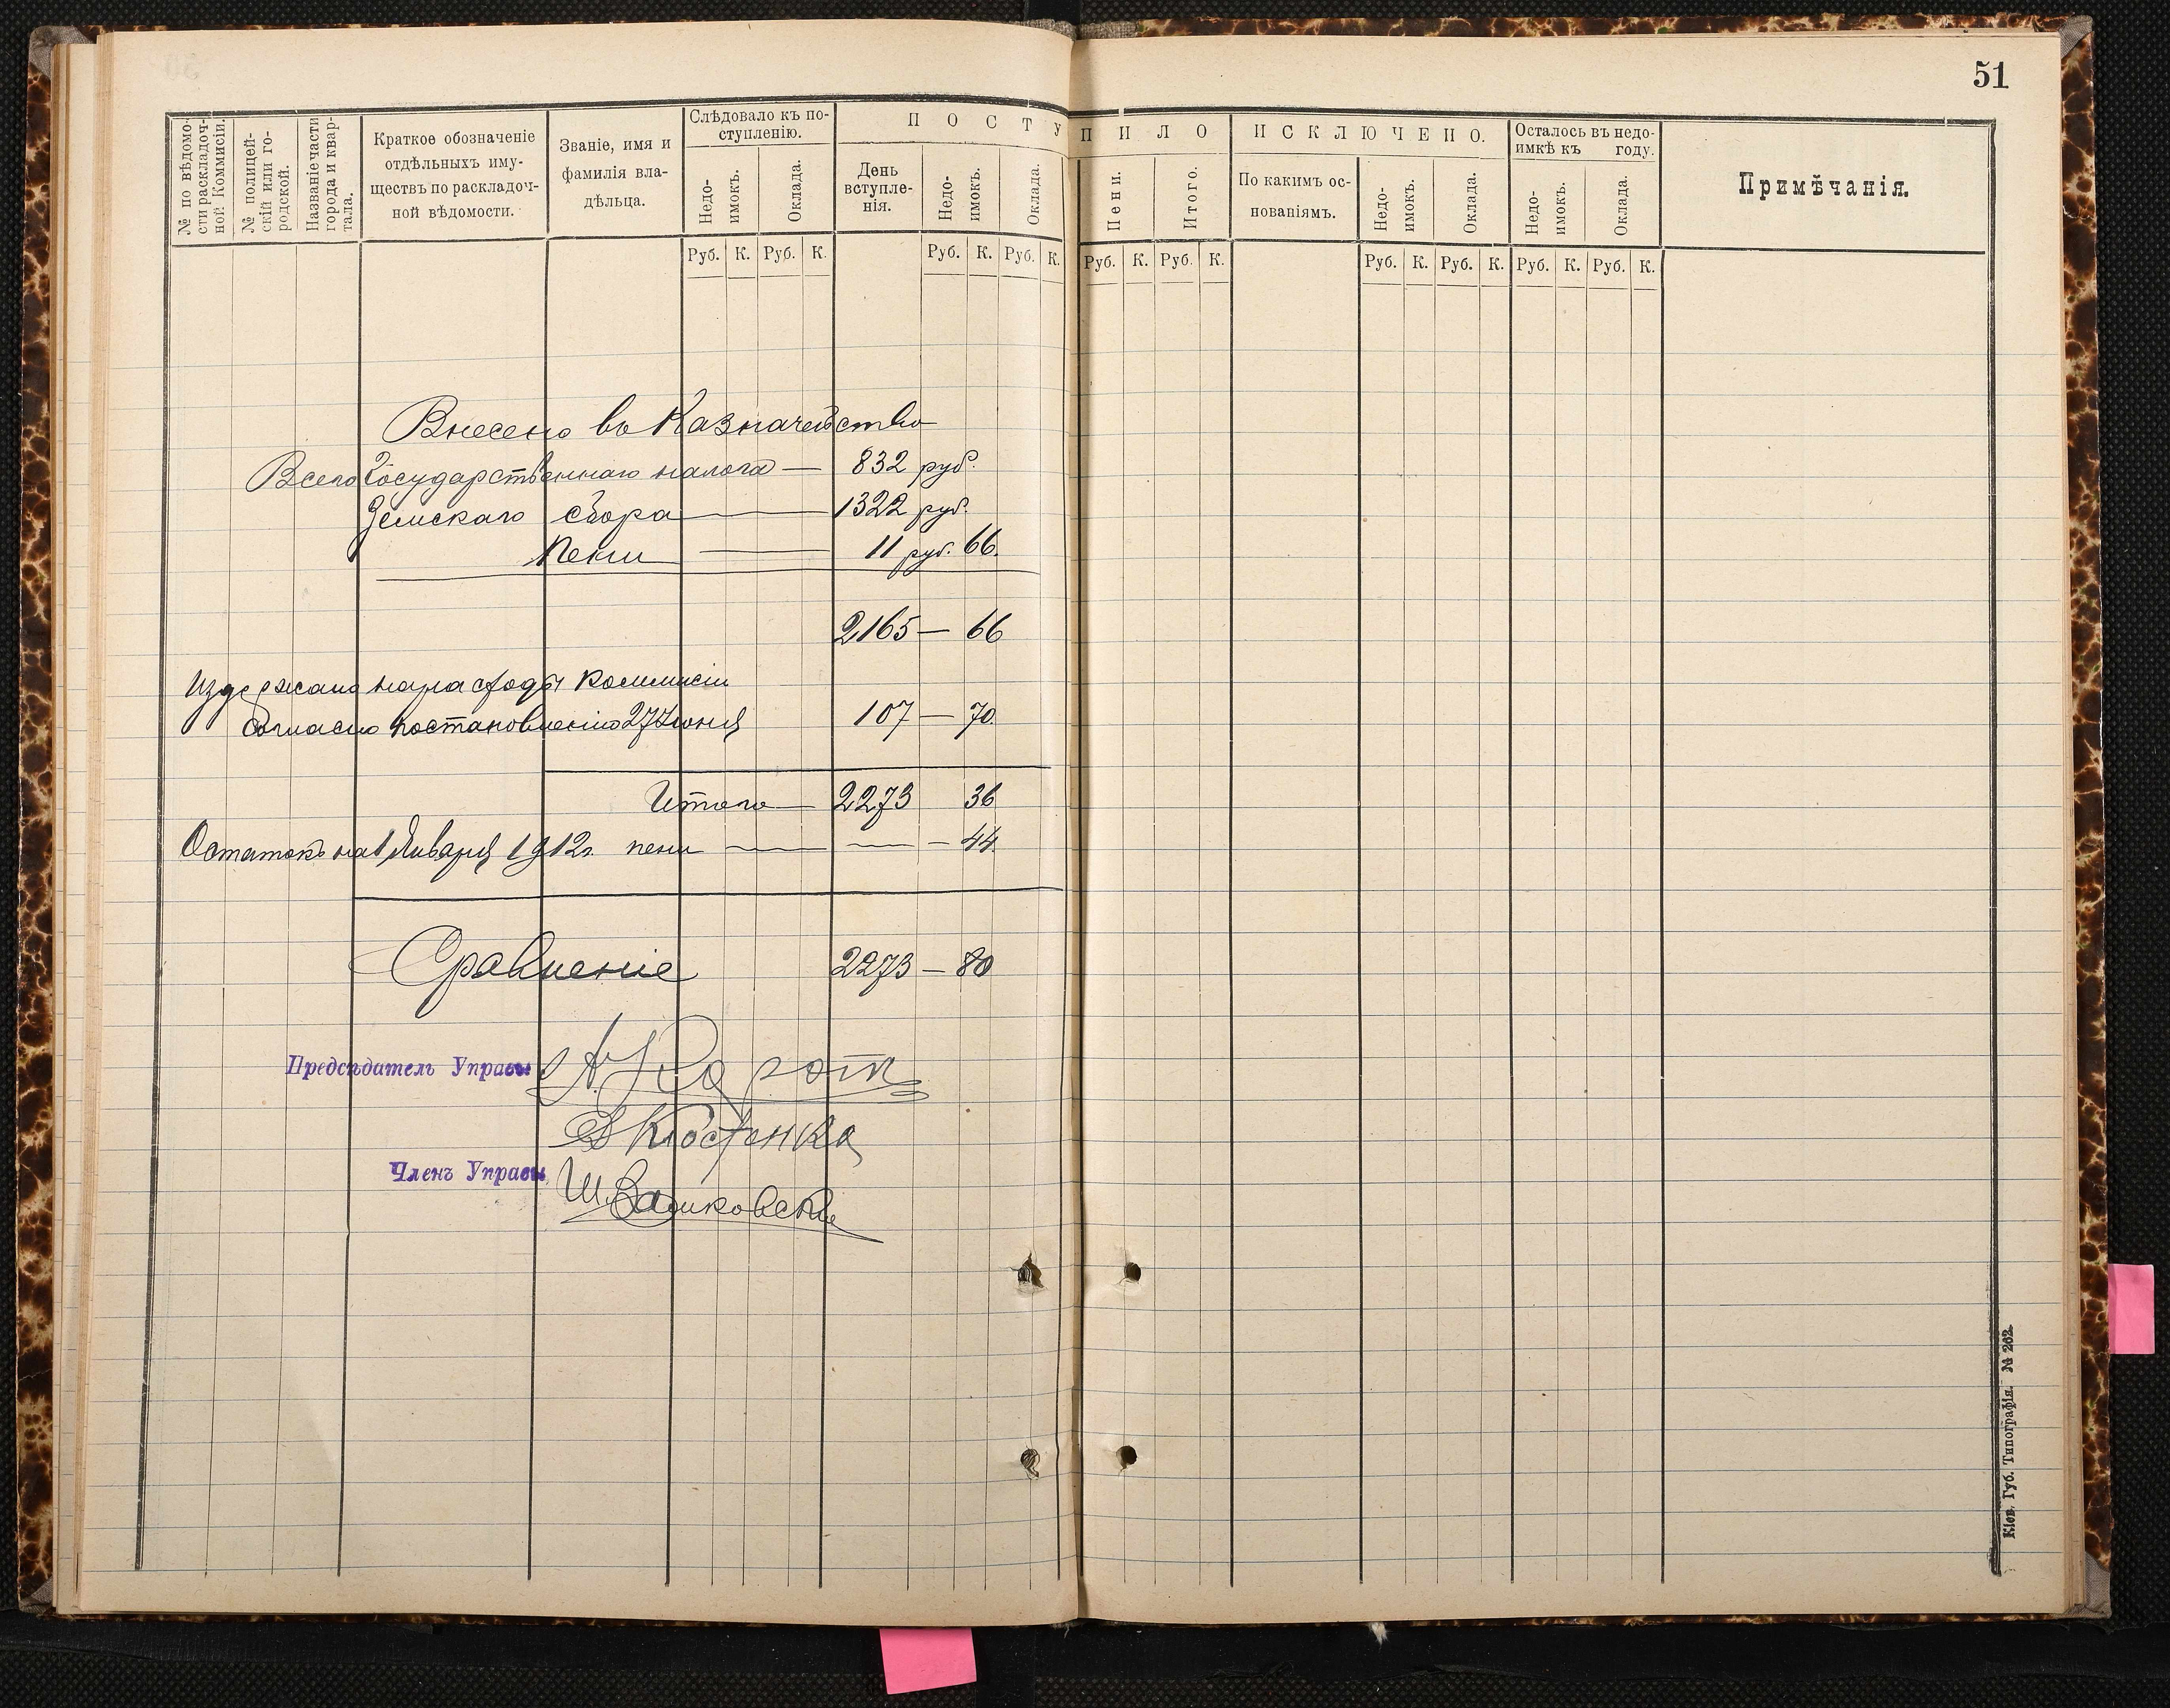 51
№ по вѣдомо-
сти раскладоч-
ной Коммисіи.
№ полицей-
скій или го-
родской.
Названіе части
города и квар-
тала.
Краткое обозначеніе
отдѣльныхъ иму-
ществъ по раскладоч-
ной вѣдомости.
Званіе, имя и
фамилія вла-
дѣльца.
Слѣдовало къ по-
ступленію.
Недо-
имокъ.
Оклада.
ПОСТУПИЛО
День
вступле-
нія.
Недо-
имокъ.
Оклада.
Пени.
Итого.
ИСКЛЮЧЕНО.
По какимъ ос-
нованіямъ.
Недо-
имокъ.
Оклада.
Осталось въ недо-
имкѣ къ году.
Недо-
имокъ.
Оклада.
Примѣчанія.
Руб. К. Руб. К. Руб. К. Руб. К. Руб. К. Руб. К. Руб. К. Руб. К. Руб. К. Руб. К.
Внесено въ Казначейство
Всего Государственнаго налога — 832 руб.
Земскаго сбора — 1322 руб.
Пени — 11 руб. 66.
2165 — 66
Издержано на расходы Коммисіи
Согласно постановленію 27 Іюня 107 — 70
Итого — 2273 36
Остатокъ на 1 Января 1912 г. пени — — — 44
Сравненіе 2273 — 80
Предсѣдатель Управы
Членъ Управы
Кіев. Губ. Типографія. № 262.